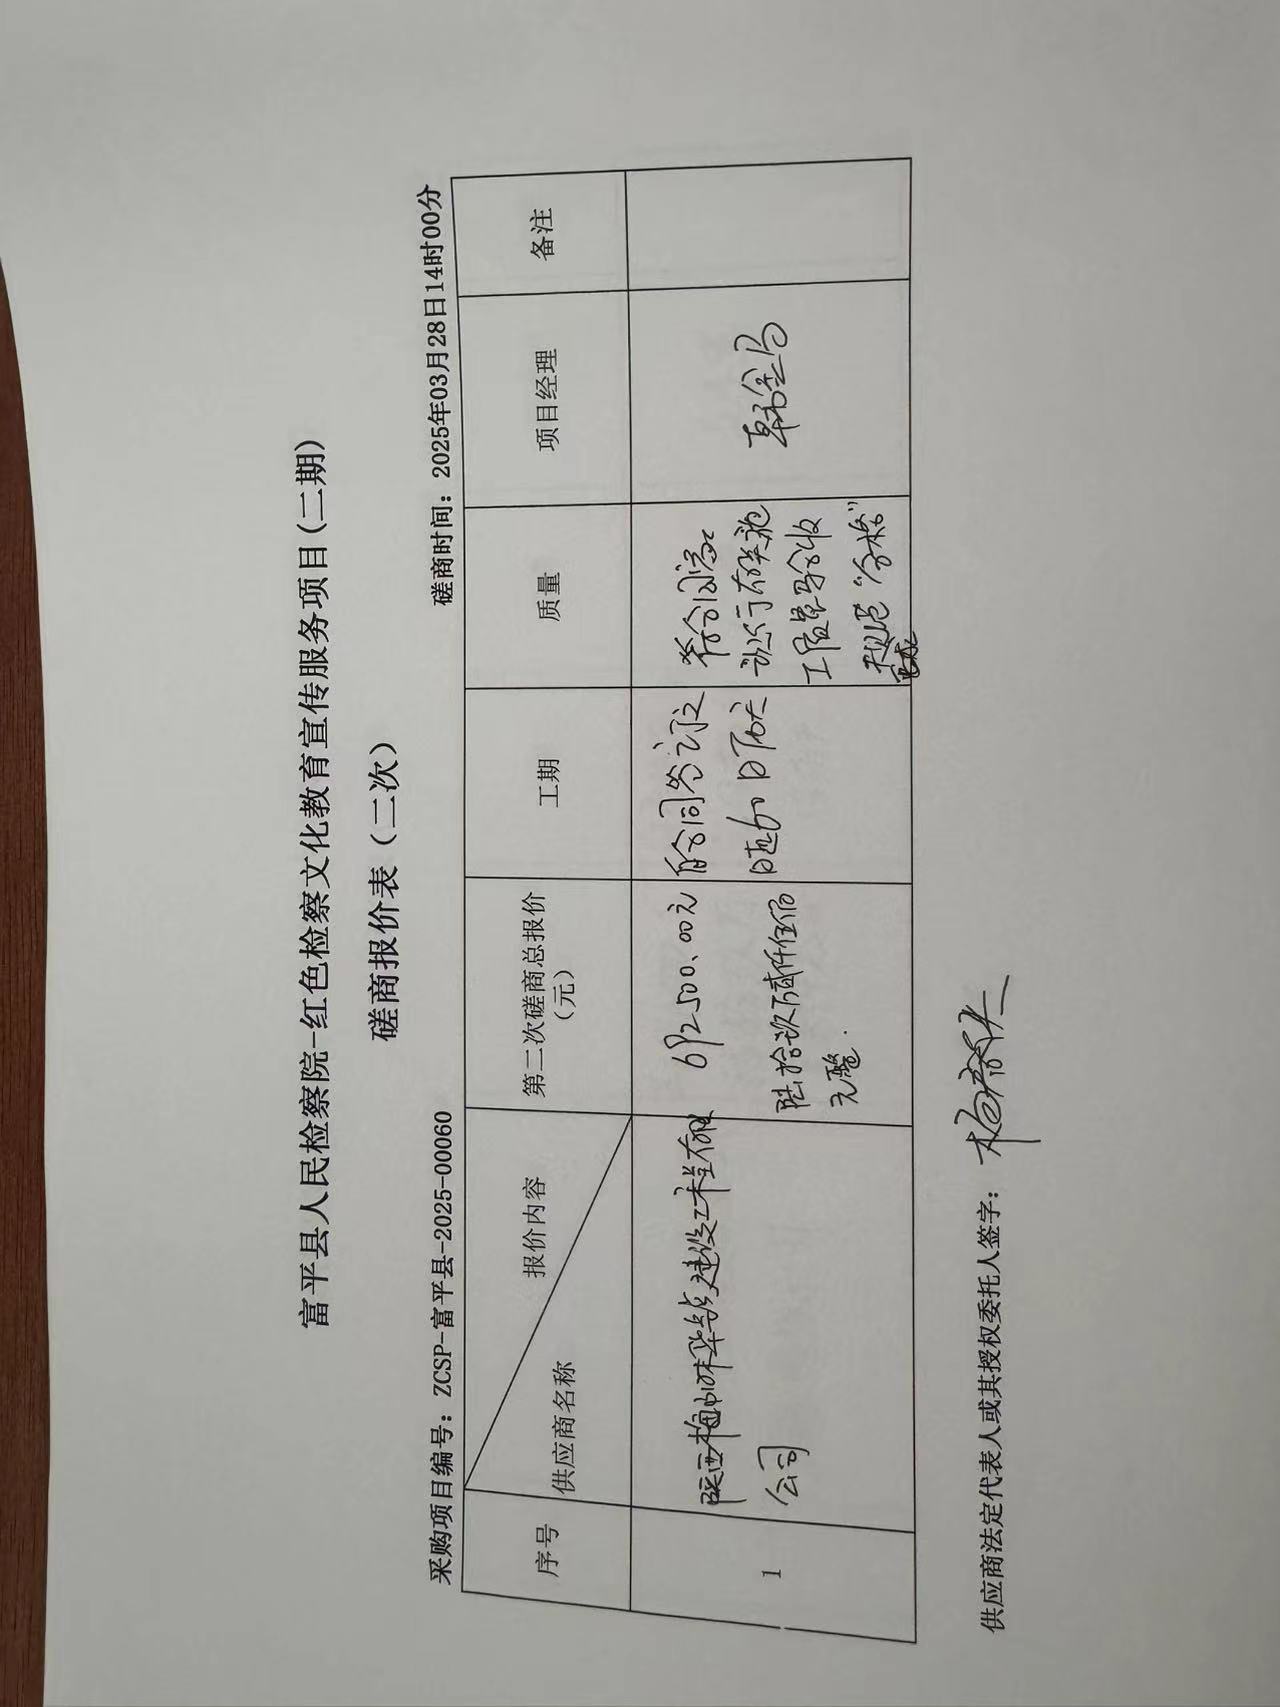 富平县人民检察院-红色检察文化教育宣传服务项目(二期)
磋商报价表（二次）
采购项目编号：ZCSP-富平县-2025-00060 磋商时间：2025年03月28日14时00分
序号
报价内容
供应商名称
第二次磋商总报价
（元）
工期
质量
项目经理
备注
1
陕西 建设工程有限
公司
692500.00元
陆拾玖万贰仟伍佰
元整.
自合同签订之
日起 日历天
符合国家
现行有关施
工质量验收
规范“合格”
韩金
供应商法定代表人或其授权委托人签字：